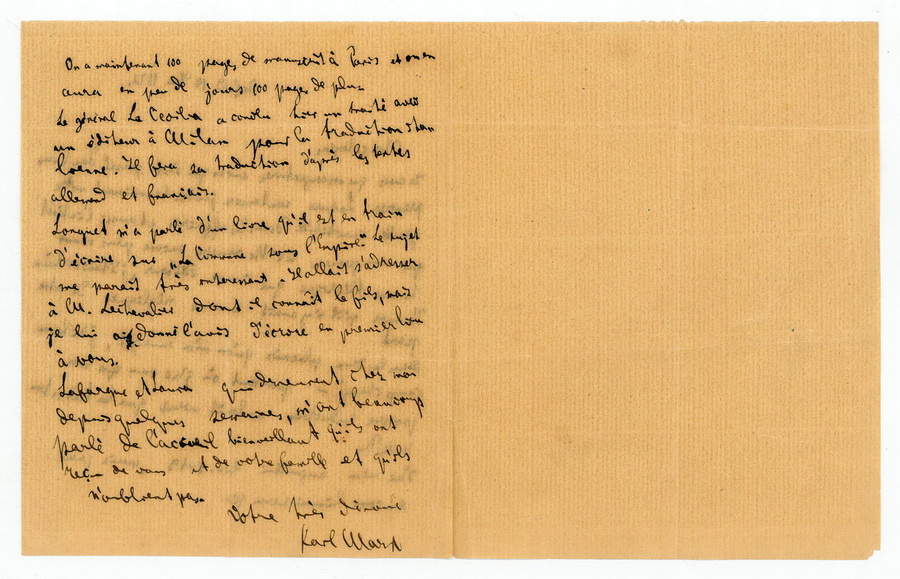 On a maintenant 100 pages de manuscrit à Paris et on en
aura en peu de jours 100 pages de plus.
Le général La Cecilia a conclu hier un traité avec
un éditeur à Milan pour la traduction italienne.
Il fera sa traduction d'après les textes
allemand et français.
Longuet m'a parlé d'un livre qu'il est en train
d'écrire sur „La Commune sous l'Empire." Le sujet
me parait très interessant. Il allait s'adresser
à M. Lechevalier dont il connait le fils, mais
je lui ai donné l'avis d'écrire en premier lieu
à vous.
Lafargue et Laura qui demeurent chez moi
depuis quelques semaines, m'ont beaucoup
parlé de l'accueil bienveillant qu'ils ont
reçu de vous et de votre famille et qu'ils
n'oublient pas.
Votre très dévoué
Karl Marx